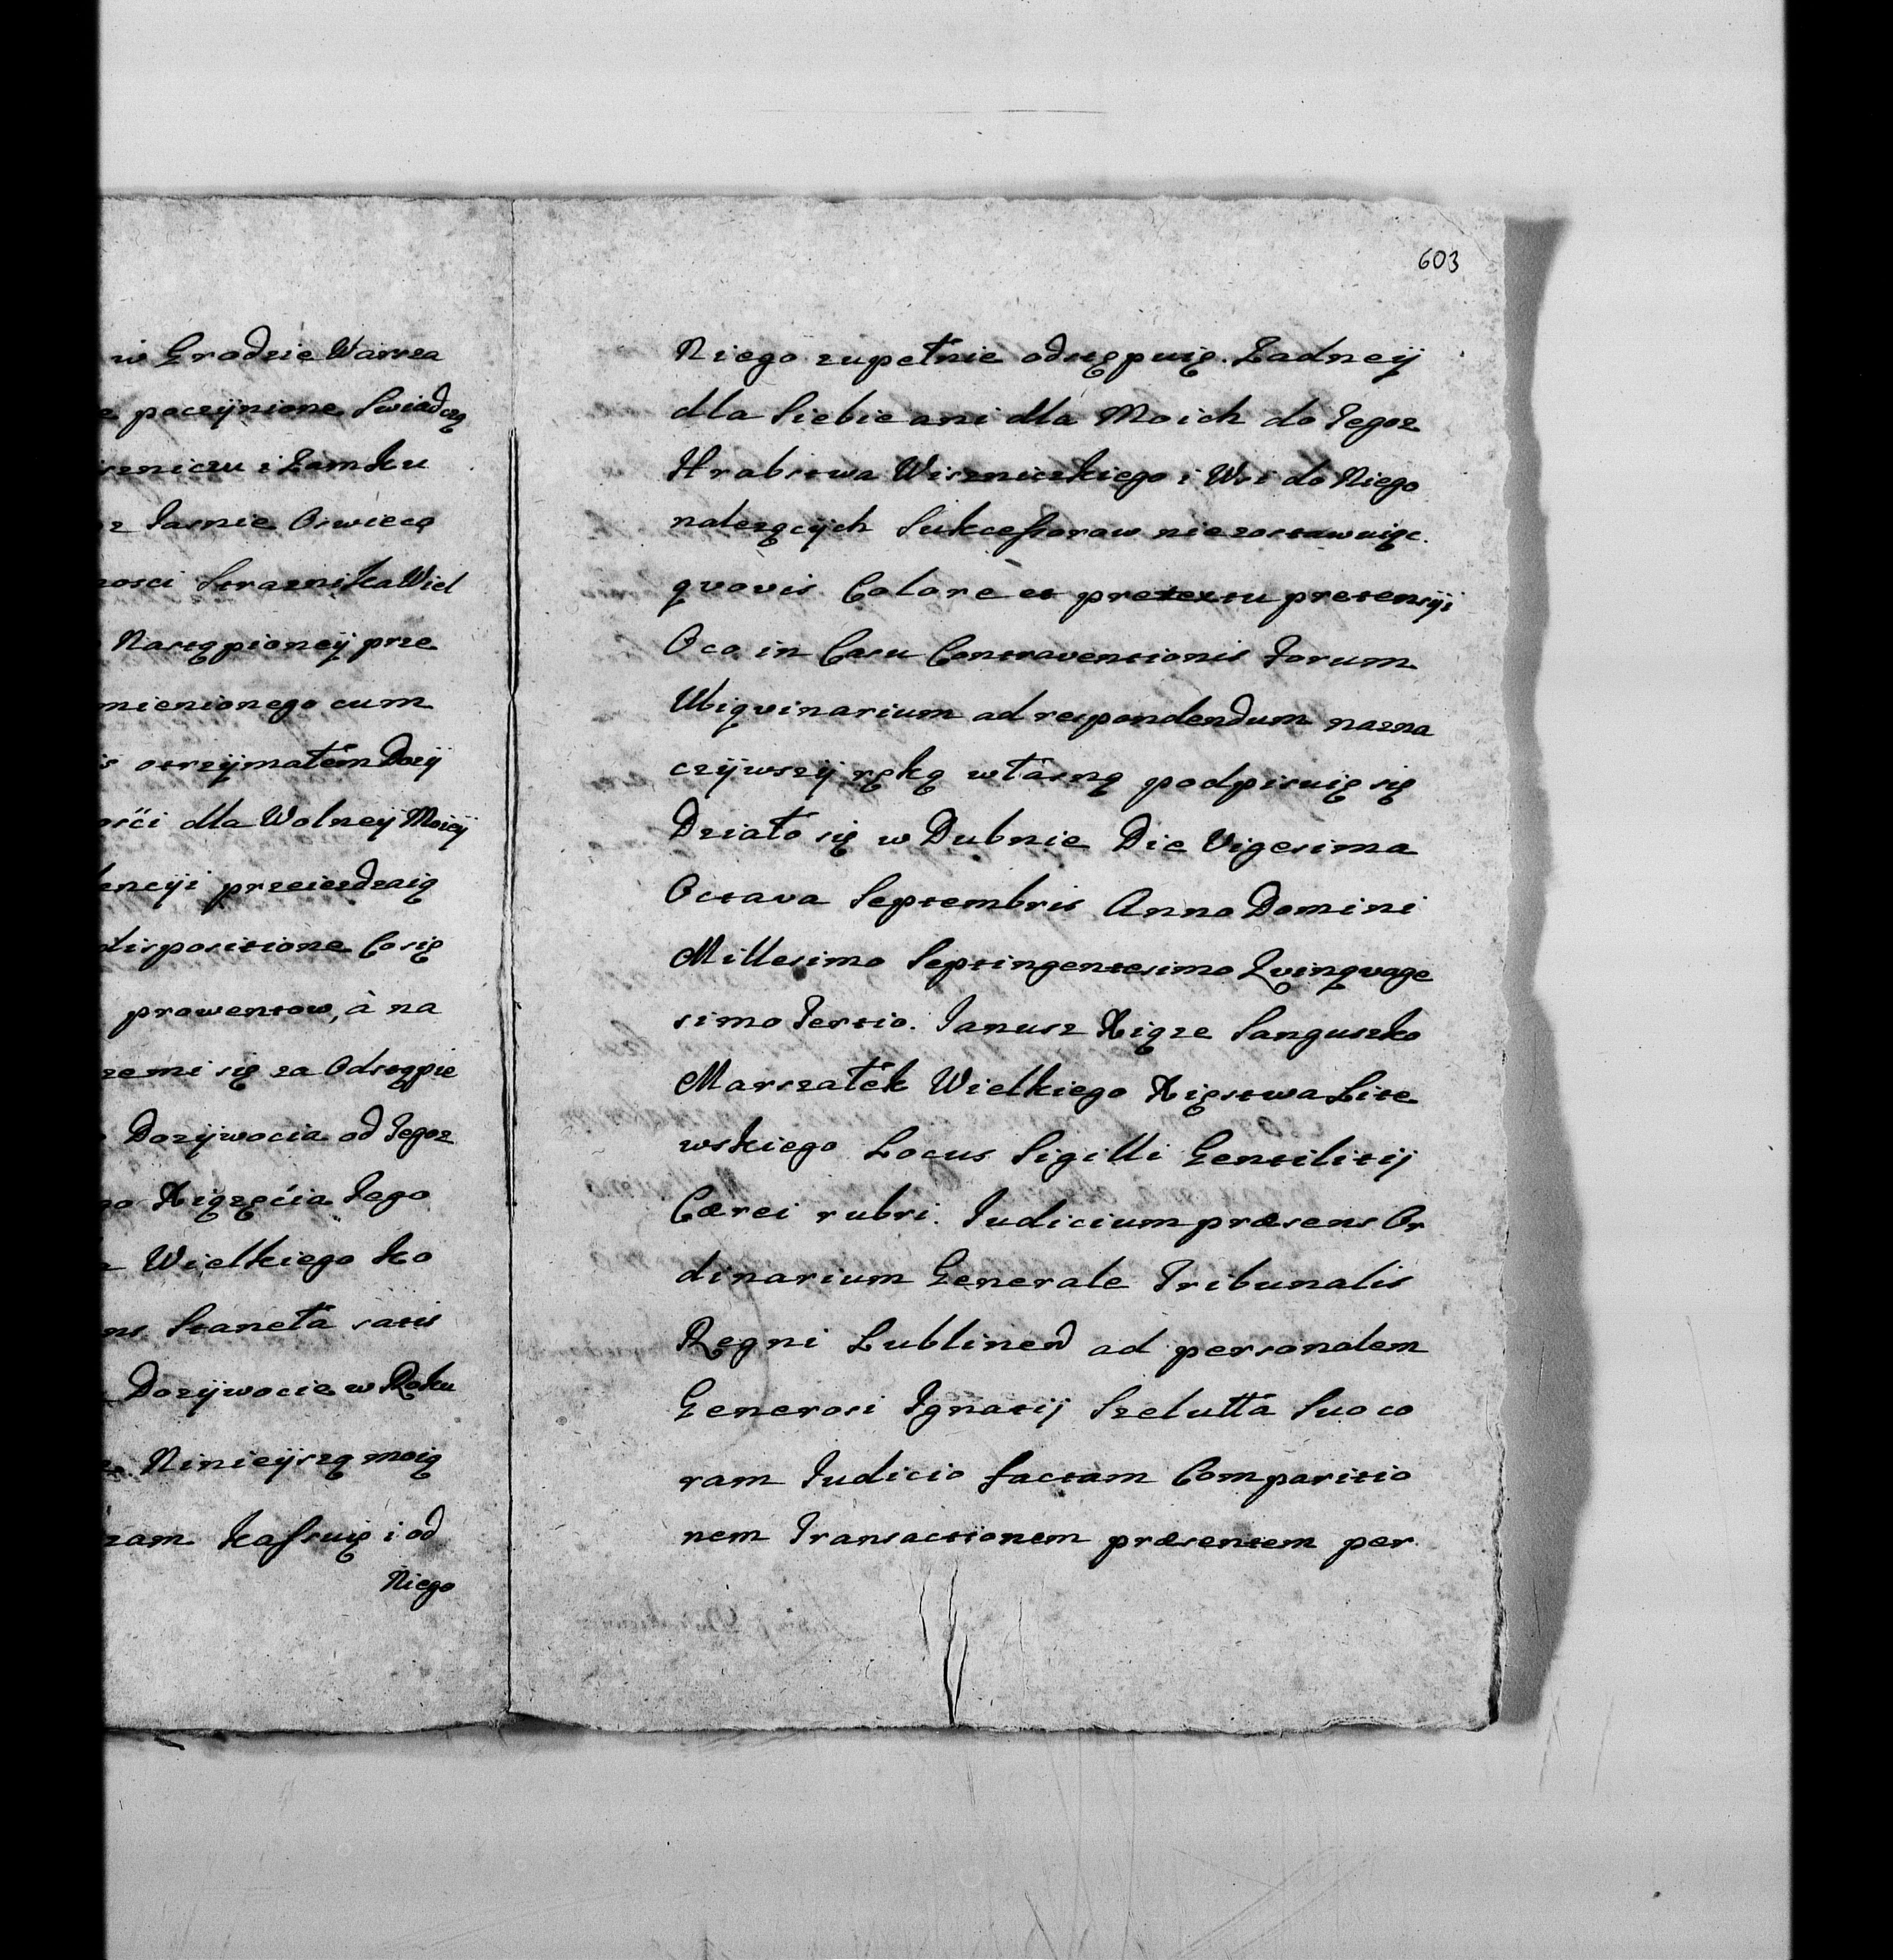 w Grodzie Warsza
poczÿnione Swiadczą
szniczu i Zamku
Jasnie Oswiecą
nosci Straznika Wiel
Nastąpioneÿ prze
mienionego cum
otrzÿmałem Dozÿ
ości dla Wolneÿ Moieÿ
dencÿi przeiezdzaią
dispositione Co się
prowentow, à na
zemi się za Odstąpie
Dozÿwocia od Tegoz
go Xiązęcia Jego
Wielkiego ko
ns Staneła satis
Dozÿwocie w Roku
Ninieÿszą moią
zam kassuię i od
Niego
603
Niego zupełnie odstępuię. Zadneÿ
dla Siebie ani dla Moich do Tegoz
Hrabstwa Wisznickiego i Wsi do Niego
nalezącÿch Sukcessorow niezostawuiąc.
quovis Colore et pretextu pretensÿi
Oco in Casu Contraventionis Forum
Ubiqvinarium ad respondendum nazna
czÿwszÿ ręką własną podpisuię się
Działo się w Dubnie Die Vigesima
Octava Septembris Anno Domini
Millesimo Septingentesimo Qvinqvage
simo Tertio. Janusz Xiąze Sanguszko
Marszałek Wielkiego Xięstwa Lite
wskiego Locus Sigilli Gentilitÿ
Cærei rubri. Judicium præsens Or
dinarium Generale Tribunalis
Regni Lublinen ad personalem
Generosi Ignatÿ Szelutta Suo co
ram Judicio factam Comparitio
nem Transactionem præsentem per